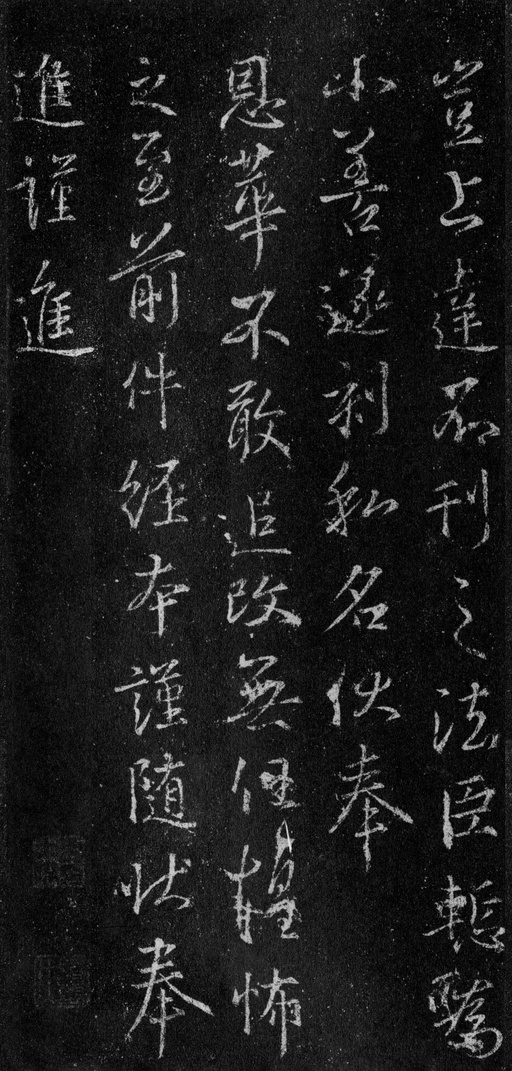 豈上達石刊之法臣輒驕
小善遂刻私名伏奉
恩華不敢追改無任怖
之至前件經本謹隨狀奉
進謹進